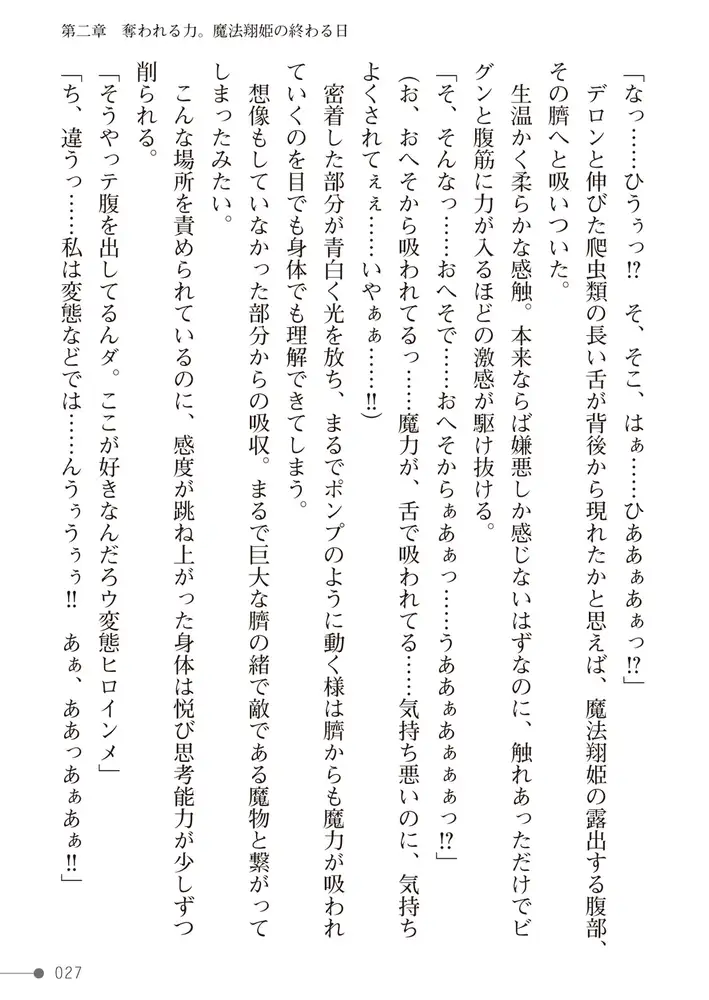 第二章　奪われる力。魔法翔姫の終わる日
「なっ……ひうぅっ!?　そ、そこ、はぁ……ひああぁあぁっ!?」
　デロンと伸びた爬虫類の長い舌が背後から現れたかと思えば、魔法翔姫の露出する腹部、
その臍へと吸いついた。
　生温かく柔らかな感触。本来ならば嫌悪しか感じないはずなのに、触れあっただけでビ
グンと腹筋に力が入るほどの激感が駆け抜ける。
「そ、そんなっ……おへそで……おへそからぁあぁっ……うああぁあぁぁぁっ!?」
(お、おへそから吸われてるっ……魔力が、舌で吸われてる……気持ち悪いのに、気持ち
よくされてぇぇ……いやぁぁ……!!)
　密着した部分が青白く光を放ち、まるでポンプのように動く様は臍からも魔力が吸われ
ていくのを目でも身体でも理解できてしまう。
　想像もしていなかった部分からの吸収。まるで巨大な臍の緒で敵である魔物と繋がって
しまったみたい。
　こんな場所を責められているのに、感度が跳ね上がった身体は悦び思考能力が少しずつ
削られる。
「そうやっテ腹を出してるんダ。ここが好きなんだろウ変態ヒロインメ」
「ち、違うっ……私は変態などでは……んうぅうぅぅ!!　あぁ、ああっあぁあぁ!!」
027